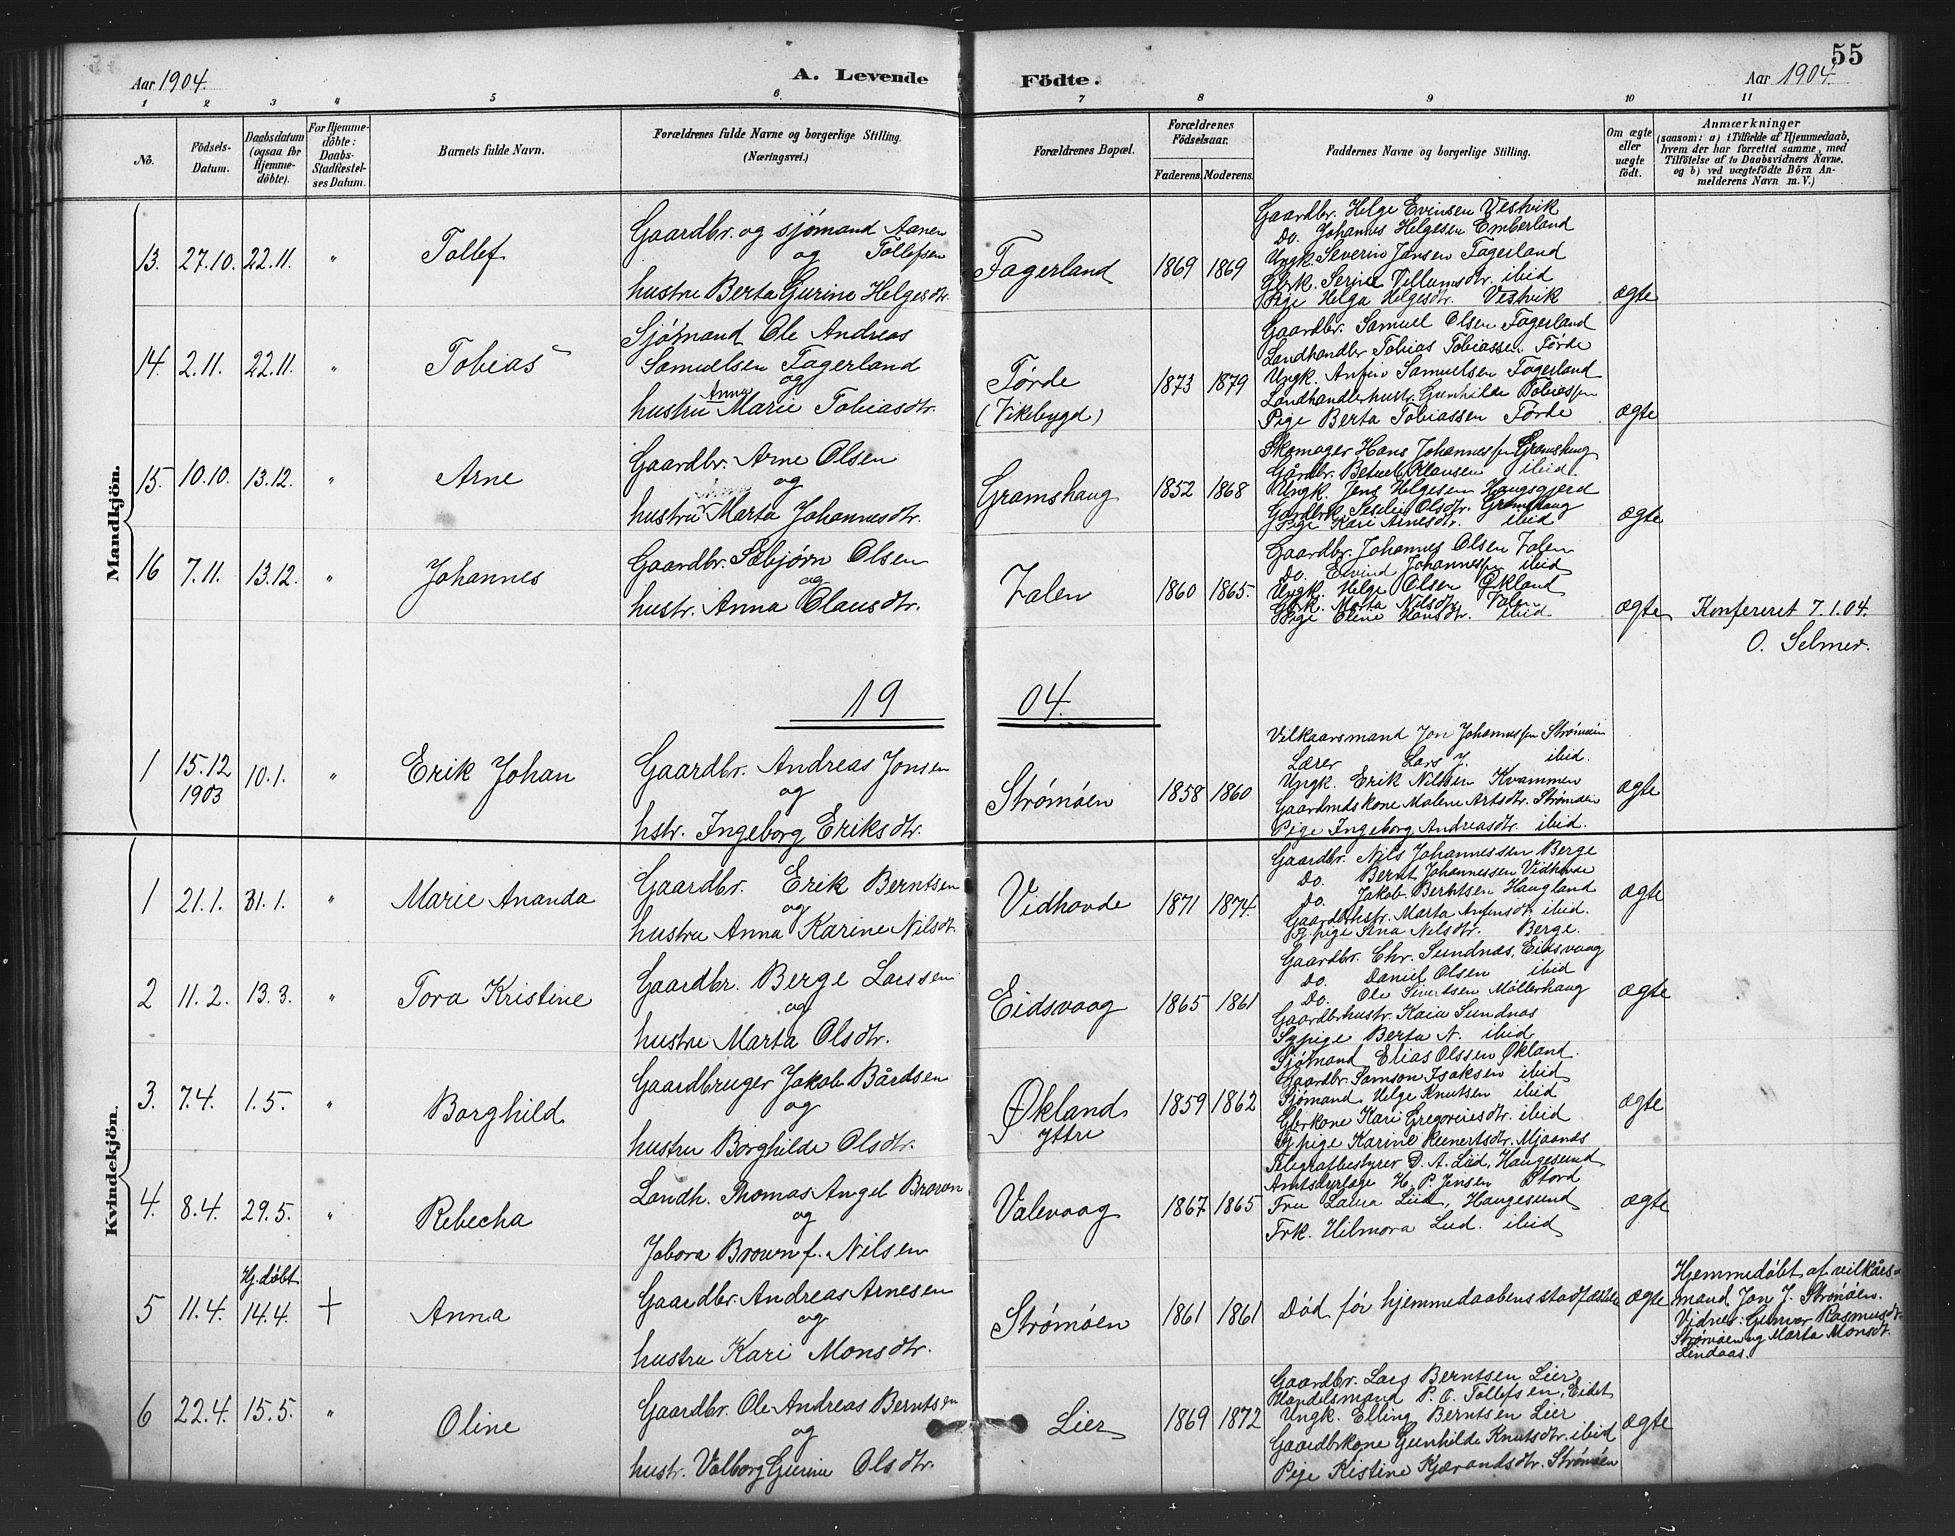 55
Aar 1904. A. Levende Födte. Aar 1904.
1 2 3 4 5 6. 7 8 9 10 11
No.
Födsels-Datum.
Daabsdatum (ogsaa for Hjemme-döbte).
For Hjemme-döbte: Daabs-Stadfæstel-ses Datum.
Barnets fulde Navn.
Forældrenes fulde Navne og borgerlige Stilling. (Næringsvei.)
Forældrenes Bopæl.
Forældrenes Födselsaar.
Faderens. Moderens.
Faddernes Navne og borgerlige Stilling.
Om ægte eller uægte födt.
Anmærkninger
(saasom: a) i Tilfælde af Hjemmedaab, hvem der har forrettet samme, med Tilföielse af to Daabsvidners Navne, og b) ved uægtefödte Börn An-melderens Navn m. V.)
Mandkjön.
13. 27.10. 22.11. " Tollef
Gaardbr. og sjømand Aanen
og Tollefsen
hustru Berta Gurine Helgesdtr.
Fagerland 1869 1869
Gaardbr. Helge Evinsen Vestvik
Do. Johannes Helgesen Emberland
Ungk. Severin Jansen Fagerland
Gbrk. Serine Villumsdtr. ibid
Pige Helga Helgesdtr. Vestvik
ægte
14. 2.11. 22.11. " Tobias
Sjømand Ole Andreas
Samuelsen Fagerland
og
hustru Anna Marie Tobiasdtr.
Førde
(Vikebygd)
1873 1879
Gaardbr. Samuel Olsen Fagerland
Landhandler Tobias Tobiassen Førde
Ungk. Anfin Samuelsen Fagerland
Landhandlerhustr. Gunhilde Tobiassen
Pige Berta Tobiassen Førde
ægte
15. 10.10. 13.12. " Arne
Gaardbr. Arne Olsen
og
hustru Marta Johannesdtr.
Gramshaug 1852 1868
Skomager Hans Johannessen Gramshaug
Gårdbr. Betuel Klausen ibid.
Ungk. Jens Helgesen Haugsgjerd
Gardbrk. Olsdtr. Gramshaug
Pige Kari Arnesdtr. ibid
ægte
16 7.11. 13.12. " Johannes
Gaardbr. Sebjørn Olsen
og
hustr. Anna Clausdtr.
Valen 1860 1865.
Gaardbr. Johannes Olsen Valen
Do. Eivind Johannessen ibid
Ungk. Helge Olsen Økland
Gbrk. Marta Nilsdtr. Valen
Pige Oline Hansdtr. ibid
ægte
Konfereret 7.1.04.
O. Selmer.
19 04.
1 15.12 1903 10.1. " Erik Johan
Gaardbr. Andreas Jonsen
og
hstr. Ingeborg Eriksdtr.
Strømøen 1858 1860
Vilkaarsmand Jon Johannessen Strømøen
Lærer Lars J. ibid.
Ungk. Erik Nilssen Kvammen
Gaardmdskone Malene Artsdtr. Strømøen
Pige Ingeborg Andreasdtr. ibid.
ægte
Kvindekjön.
1 21.1. 31.1. " Marie Ananda
Gaardbr. Erik Berntsen
og
hustru Anna Karine Nilsdt.
Vidhovde 1871 1874.
Gaardbr. Nils Johannessen Berge
Do. Bernt Johannessen Vidhovde
Do. Jakob Berntsen Haugland
Gaardbrhstr. Marta Anfinsdt. ibid.
Gpige Sina Nilsdtr. Berge.
ægte
2 11.2. 13.3. " Tora Kristine
Gaardbr. Berge Larssen
og
hustru Marta Olsdtr.
Eidsvaag 1865 1861
Gaardbr. Chr. Sundnas, Eidsvaag
Do. Daniel Olsen ibid
Do. Ole Sivertsen Møllerhaug
Gaardbrhustr. Kaia Sundnas
Gpige Berta N. ibid
ægte
3. 7.4. 1.5. " Borghild
Gaardbruger Jakob Bårdsen
og
hustru Borghilde Olsdtr.
Økland
Ytre
1859 1862
Sjømand Elias Olssen Økland.
Gaardbr. Samson Isaksen ibid
Sjømand Helge Knutsen ibid
Gbrkone Kari Gregoriusdtr. ibid
Gpige Karine Reinertsdtr. Mjaanæs
ægte
4. 8.4. 29.5. " Rebecha
Landh. Thomas Angel Brown
og
Jobora Brown f. Nilsen
Valevaag 1867 1865
Telegrafbestyrer D. A. Lud, Haugesund
Amtsdyrlæge H. P. Jensen Stord
Fru Laura Lud, Haugesund
Frk. Hilmora Lud. ibid
ægte
5 11.4. Hj. døbt 14.4. + Anna
Gaardbr. Andreas Arnesen
og
hustru Kari Monsdtr.
Strømøen 1861 1861
Død før hjemmedaabens stadfæstelse
ægte
Hjemmedøbt af vilkårs=
mand Jon J. Strømøen.
Vidner: Gunvor Rasmusdt.
Strømøen og Marta Monsdt.
Lindaas.
6 22.4. 15.5. " Oline
Gaardbr. Ole Andreas Berntsen
og
hustr. Valborg Gurine Olsdtr.
Lier 1869 1872
Gaardbr. Lars Berntsen Lier
Handelsmand P. O. Tollefsen, Eidet
Ungk. Elling Berntsen Lier
Gaardbrkone Gunhilde Knutsdtr. ibid
Pige Kistine Kjærandsdtr. Strømøen
ægte